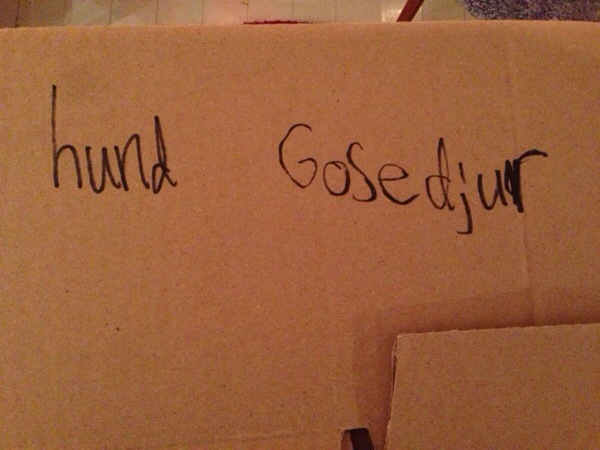 hund Gosedjur